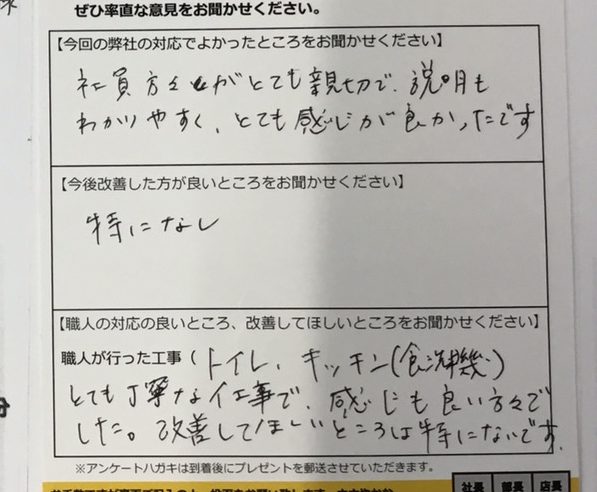 ぜひ率直な意見をお聞かせください。
【今回の弊社の対応でよかったところをお聞かせください】
社員方々がとても親切で、説明も
わかりやすく、とても感じが良かったです
【今後改善した方が良いところをお聞かせください】
特になし
【職人の対応の良いところ、改善してほしいところをお聞かせください】
職人が行った工事（トイレ、キッチン(食洗機)
とても丁寧な仕事で、感じも良い方々で
した。改善してほしいところは特にないです。
※アンケートハガキは到着後にプレゼントを郵送させていただきます。
社長 部長 店長